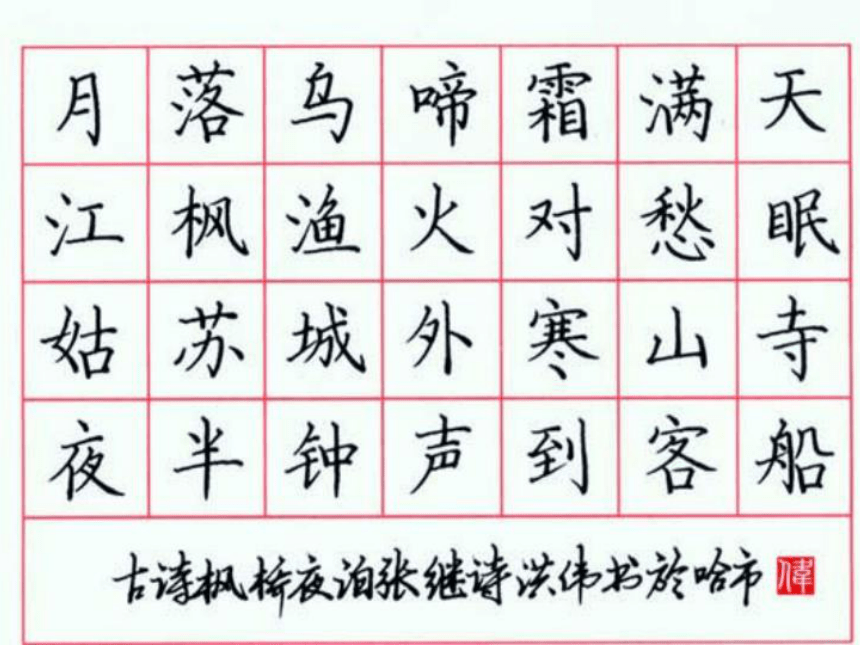 月落乌啼霜满天
江枫渔火对愁眠
姑苏城外寒山寺
夜半钟声到客船
古诗枫桥夜泊张继诗洪伟书於哈市
偉